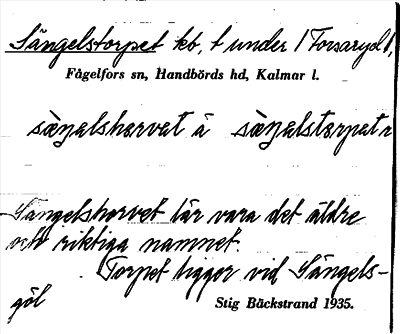 Sängelstorpet kb, t under 1 Torsaryd 1,
Fågelfors sn, Handbörds hd, Kalmar l.
sæŋalshorvat å sæŋalstorpat
Sängelshorvet lär vara det äldre
och riktiga namnet.
Torpet ligger vid Sängels-
göl
Stig Bäckstrand 1935.